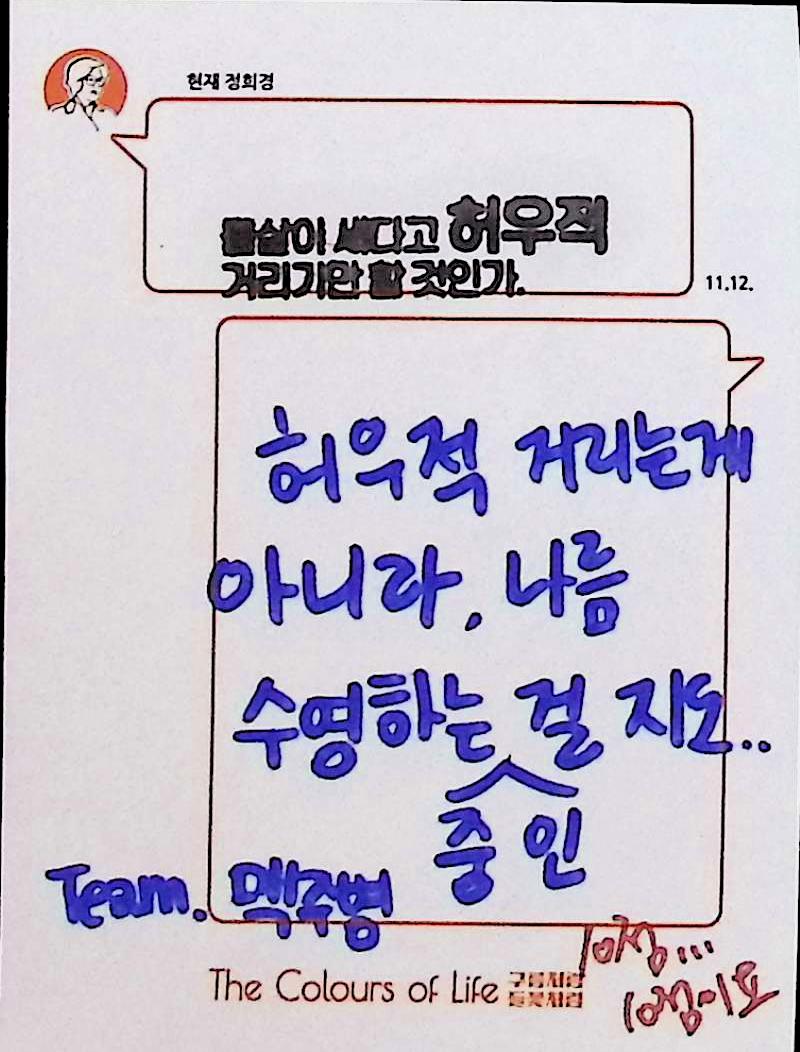 현재 정희경
물살이 세다고 허우적
거리기만 할 것인가.
11.12.
허우적 거리는게
아니라, 나름
수영하는 걸 지도..
중인
Team. 맥주병
인정...
인정~!요
The Colours of Life 구름처럼
들꽃처럼